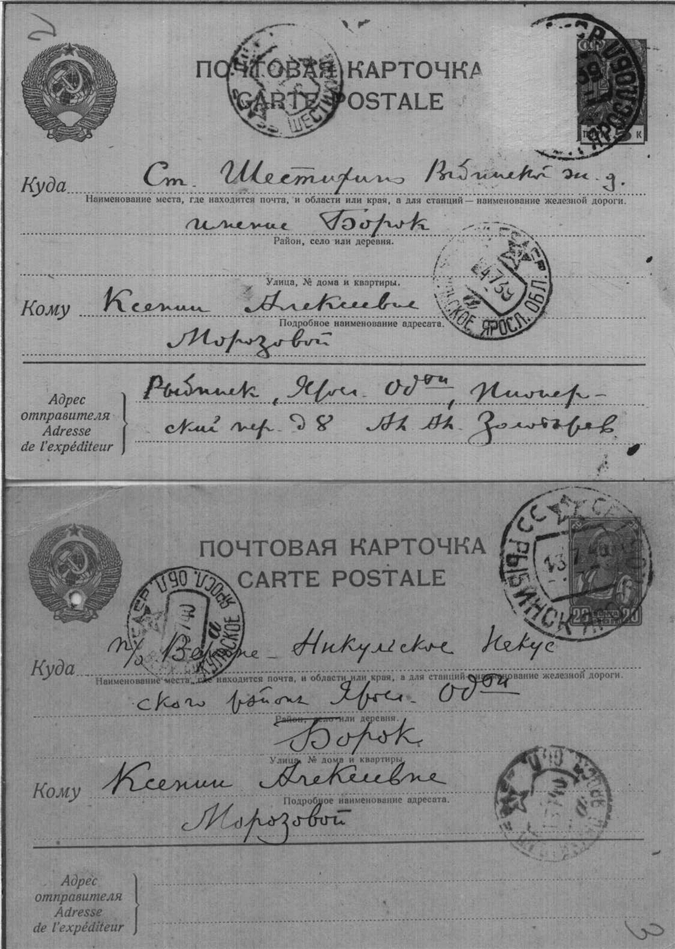 2
ПОЧТОВАЯ КАРТОЧКА
CARTE POSTALE
ШЕСТИХИНО
ЯРОСЛ
39
К
Куда Ст. Шестихино Рыбинской ж. д.
Наименование места, где находится почта, и области или края, а для станций — наименование железной дороги.
имение Борок
Район, село или деревня.
24 7 39
ЯРОСЛ. ОБЛ.
Улица, № дома и квартиры.
Кому Ксении Алексеевне
Подробное наименование адресата.
Морозовой
Адрес отправителя
Adresse de l'expéditeur
Рыбинск, Яросл. Обл, Пионер-
ский пер. д 8 Ал. Ал. Золотарев
ПОЧТОВАЯ КАРТОЧКА
CARTE POSTALE
СССР
РЫБИНСК
13 7 40
20 20
ЯРОСЛ. ОБЛ.
Куда п/о Верхне-Никульское Некуз
Наименование места, где находится почта, и области или края, а для станций — наименование железной дороги.
ского района Яросл. Обл
Район, село или деревня.
Борок
Улица, № дома и квартиры.
Кому Ксении Алексеевне
Подробное наименование адресата.
Морозовой
Адрес
отправителя
Adresse
de l'expéditeur
3